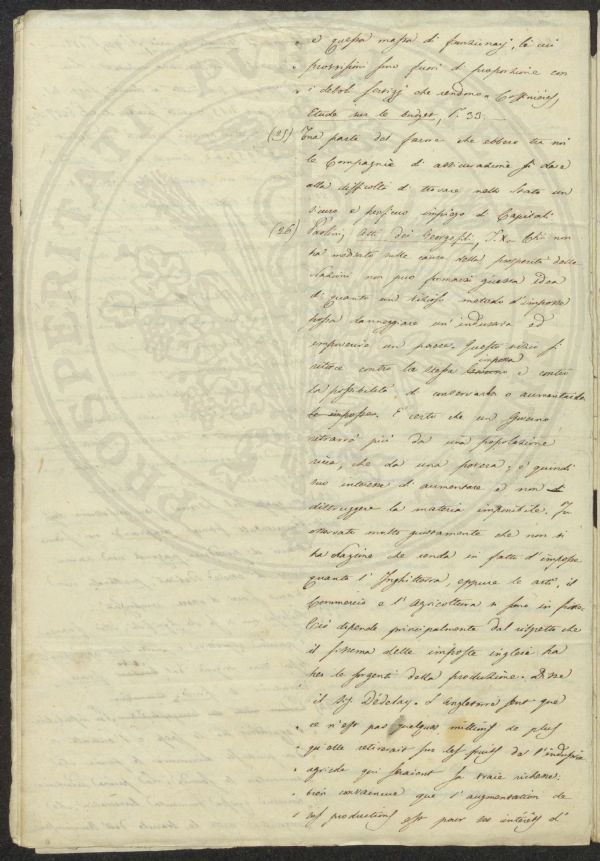 e questa massa di funzionarj, le cui
provvisioni sono fuori di proporzione con
i deboli servizj che rendono» Coffinières,
Etude sur le budget, P. 33.
(25) Una parte del favore che ebbero tra noi
le Compagnie di assicurazione si deve
alla difficoltà di trovare nello Stato un
sicuro e proficuo impiego di Capitali
(26) Paolini, Atti dei Georgofili, T. X. Chi non
ha meditato sulle cause della prosperità delle
nazioni non può formarsi giusta idea
di quanto un vizioso metodo d'imposte
possa danneggiare un'industria ed
impoverire un paese. Questo vizio si
ritorce contro la stessa imposta e contro
la possibilità di conservarla o aumentarla
le imposte. È certo che un Governo
ritrarrà più da una popolazione
ricca, che da una povera; è quindi
suo interesse di aumentare e non di
distruggere la materia imponibile. Fu
osservato molto giustamente che non vi
ha Nazione che renda in fatto d'imposte
quanto l'Inghilterra, eppure le arti, il
Commercio e l'Agricoltura vi sono in fiore.
Ciò dipende principalmente dal rispetto che
il sistema delle imposte inglesi ha
per le sorgenti della produzione. Dice
il Sig. Dedelay. L'Angleterre sent que
ce n'est pas quelques millions de plus
qu'elle retirerait sur les fruits de l'industrie
agricole qui seraient sa vraie richesse:
bien convaincue que l'augmentation de
ses productions est pour ses intérêts d'